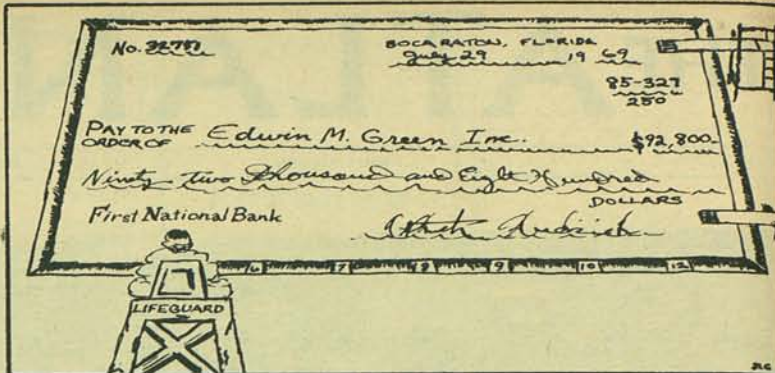 No. 32757
BOCA RATON, FLORIDA
July 29 19 69
85-327
250
PAY TO THE
ORDER OF Edwin M. Green Inc. $92,800.
Ninety-two Thousand and Eight Hundred
DOLLARS
First National Bank
6 7 8 9 10 12
LIFEGUARD